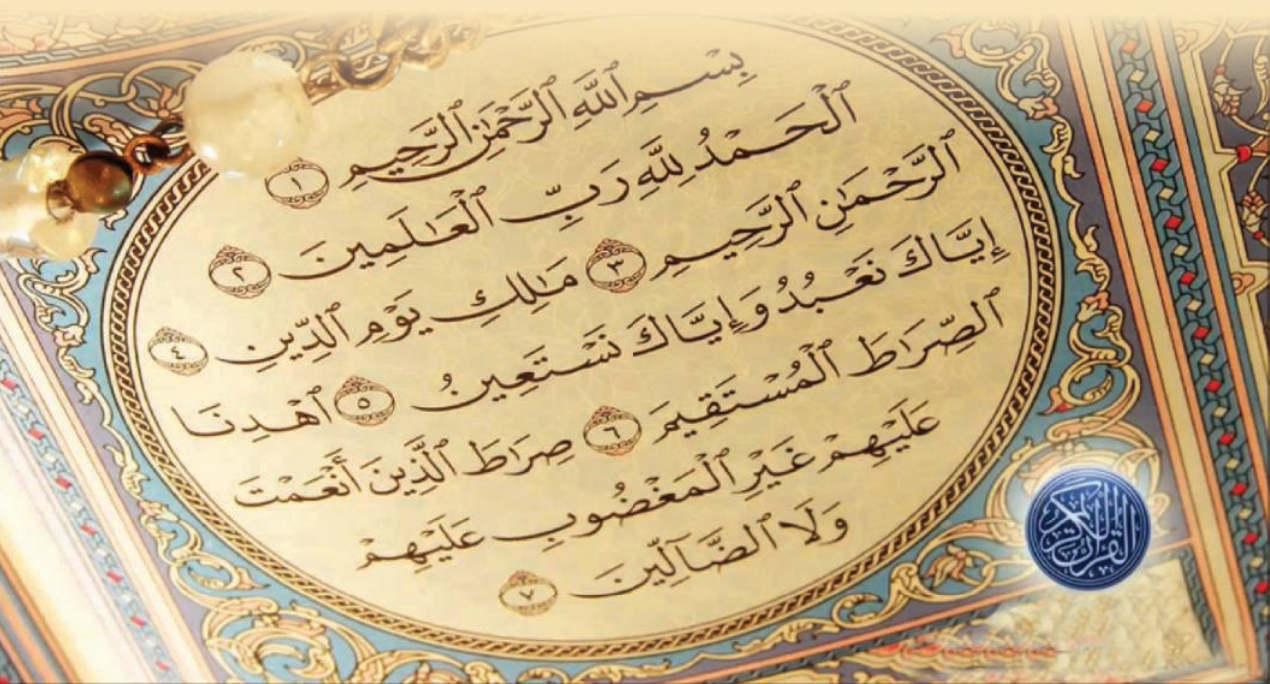 بِسْمِ ٱللَّهِ ٱلرَّحْمَٰنِ ٱلرَّحِيمِ ١
ٱلْحَمْدُ لِلَّهِ رَبِّ ٱلْعَٰلَمِينَ ٢
ٱلرَّحْمَٰنِ ٱلرَّحِيمِ ٣ مَٰلِكِ يَوْمِ ٱلدِّينِ ٤
إِيَّاكَ نَعْبُدُ وَإِيَّاكَ نَسْتَعِينُ ٥ ٱهْدِنَا
ٱلصِّرَٰطَ ٱلْمُسْتَقِيمَ ٦ صِرَٰطَ ٱلَّذِينَ أَنْعَمْتَ
عَلَيْهِمْ غَيْرِ ٱلْمَغْضُوبِ عَلَيْهِمْ
وَلَا ٱلضَّآلِّينَ ٧
القرآن الكريم